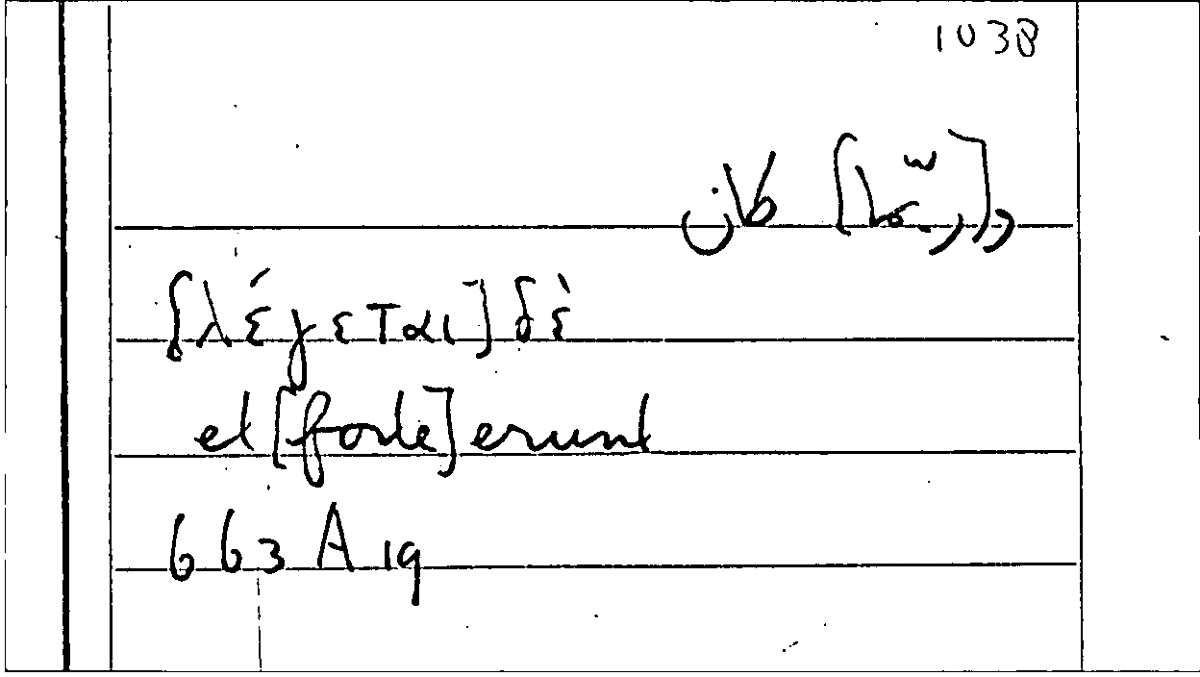 1038
و[ربّما] كان
[λέγεται] δὲ
et [forte] erunt
663 A 19